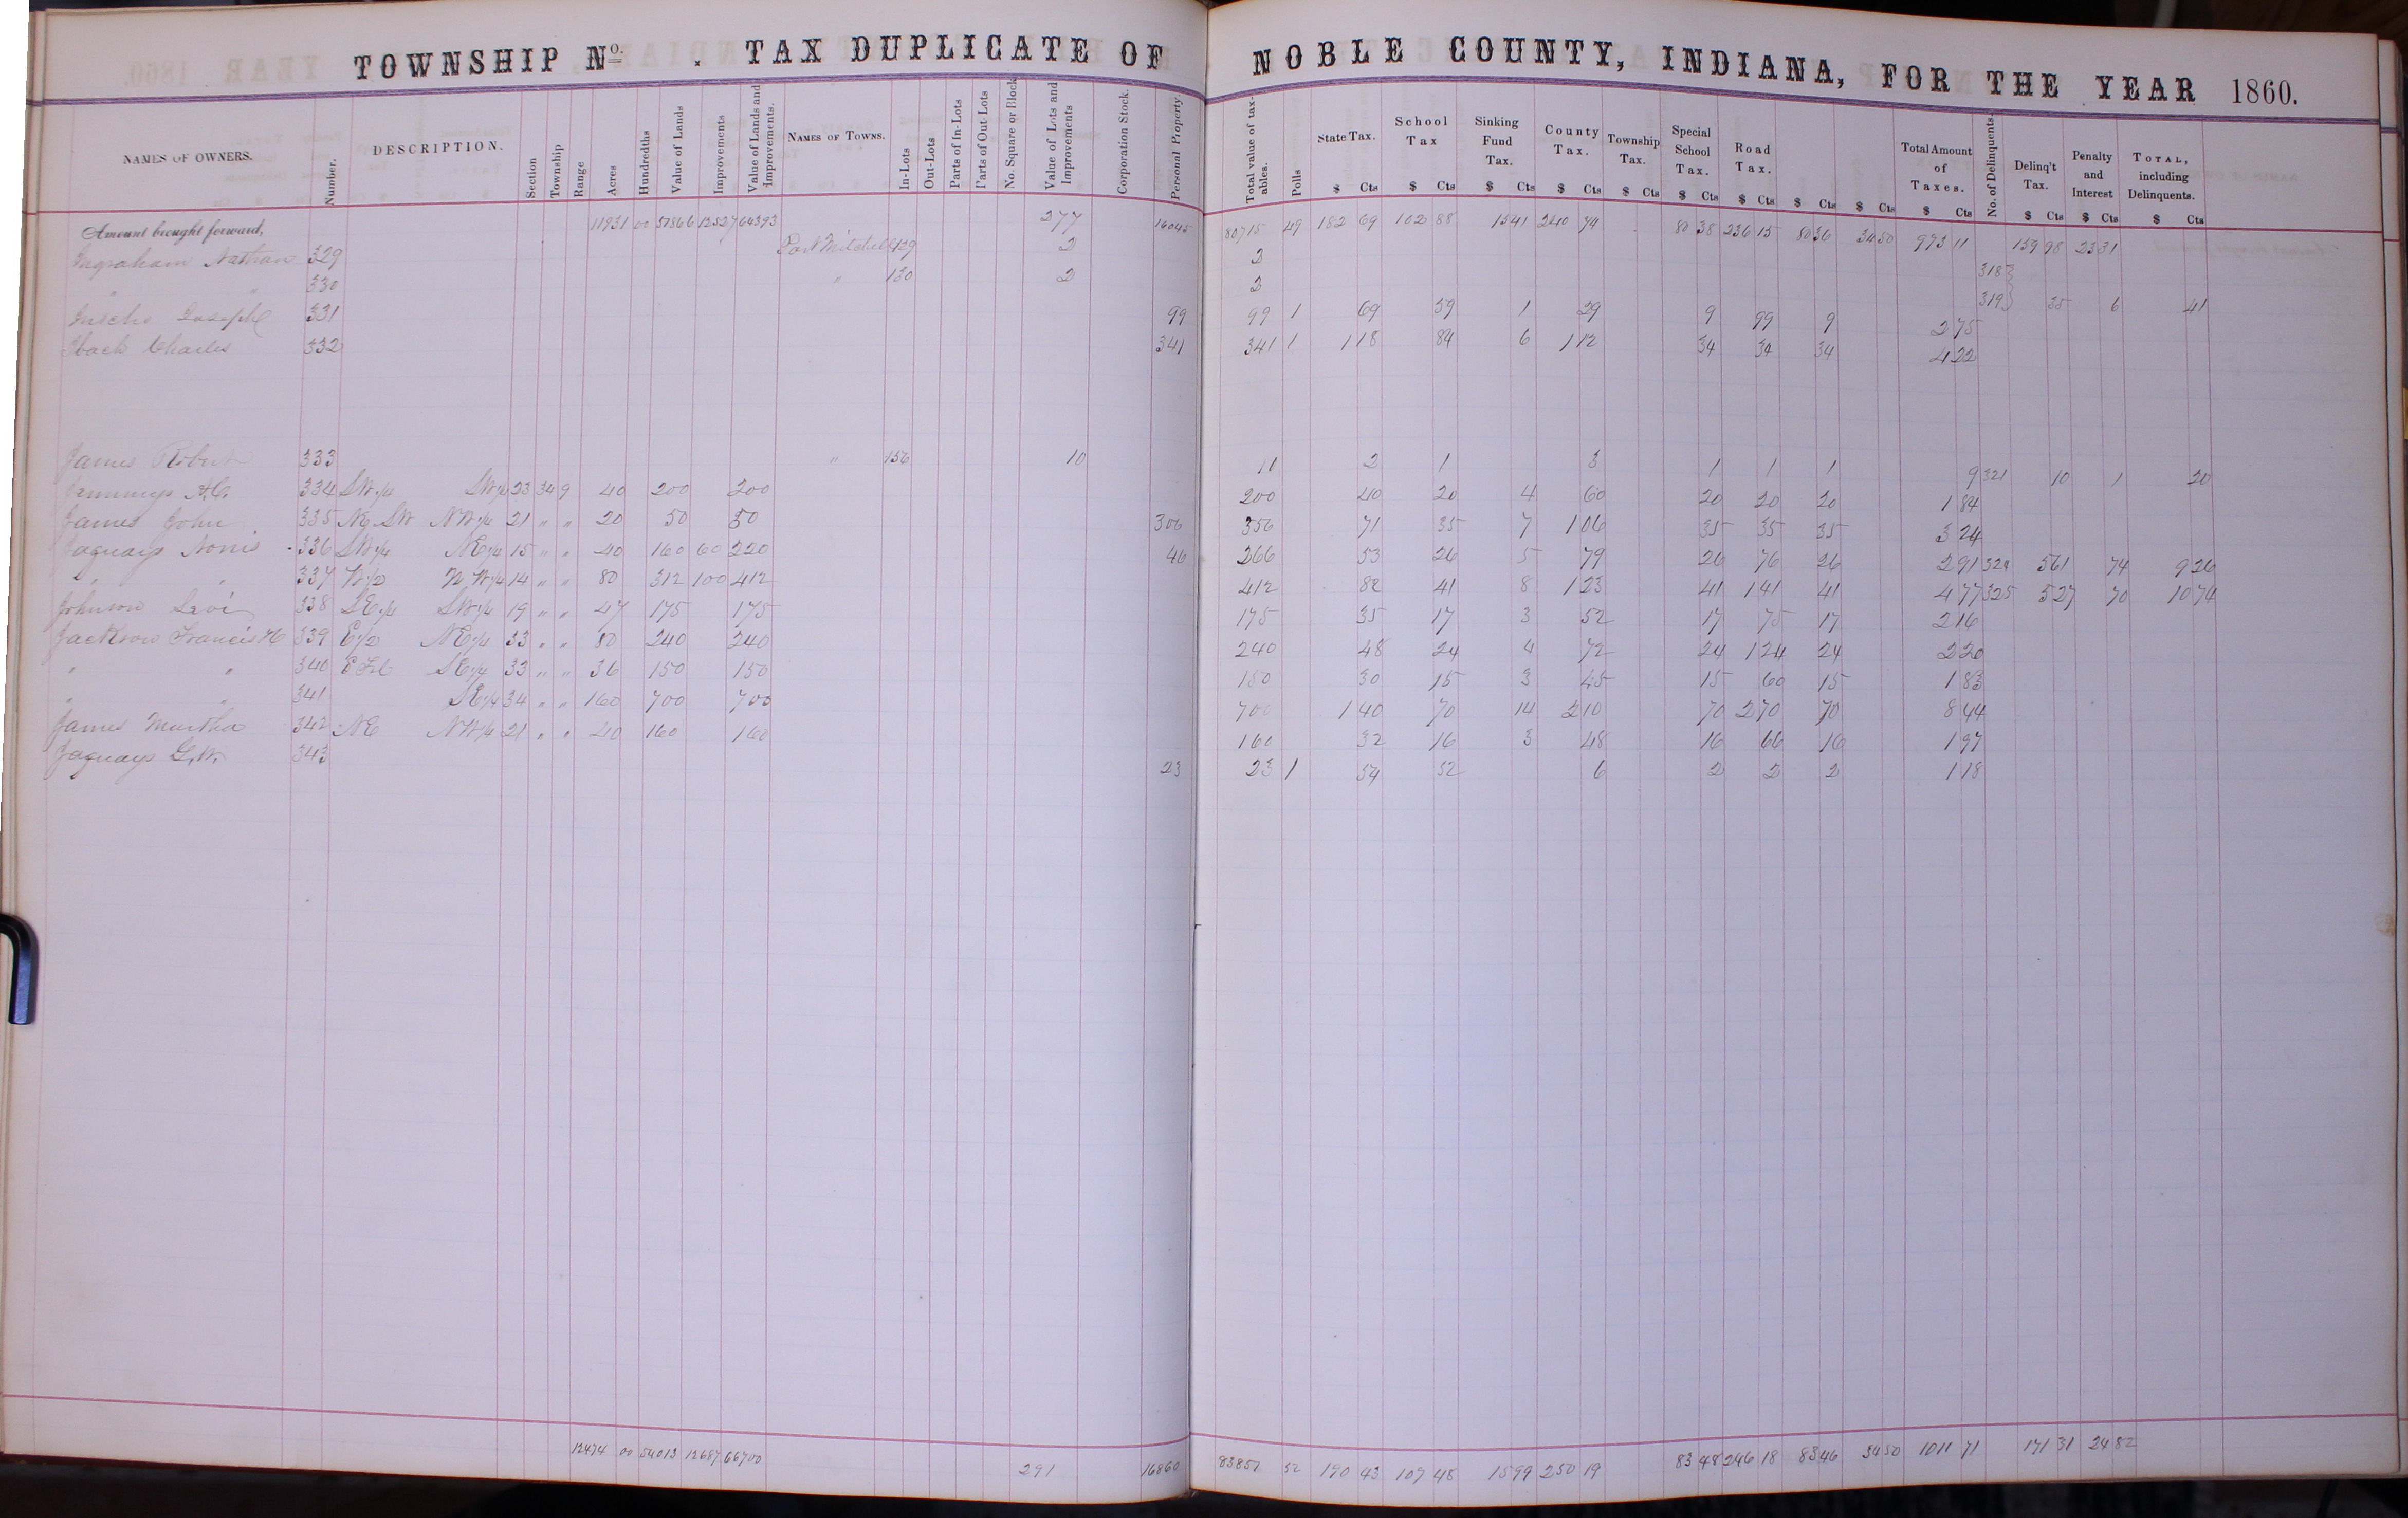 TOWNSHIP No. . TAX DUPLICATE OF NOBLE COUNTY, INDIANA, FOR THE YEAR 1860.
NAMES OF OWNERS. Number. DESCRIPTION. Section Township Range Acres Hundredths Value of Lands Improvements Value of Lands and Improvements. NAMES OF TOWNS. In-Lots Out-Lots Parts of In-Lots Parts of Out-Lots No. Square or Block Value of Lots and Improvements Corporation Stock. Personal Property. Total value of taxables. Polls State Tax. School Tax Sinking Fund Tax. County Tax. Township Tax. Special School Tax. Road Tax. Total Amount of Taxes. No. of Delinquents. Delinq't Tax. Penalty and Interest TOTAL, including Delinquents.
$ Cts $ Cts $ Cts $ Cts $ Cts $ Cts $ Cts $ Cts $ Cts $ Cts $ Cts $ Cts $ Cts
Amount brought forward, 11931 00 12527 64393 277 16045 80715 49 182 69 102 88 1541 240 74 80 38 236 15 80 36 34 50 973 11 159 98 23 31
Ingraham Nathan 329 Port Mitchell 129 2 2
" " 330 " 130 2 2 318 319 35 6 41
Joseph 331 99 99 1 69 59 1 29 9 99 9 2 75
Iback Charles 332 341 341 1 1 18 84 6 1 12 34 34 34 4 22
James Robert 333 " 156 10 10 2 1 3 1 1 1 9 321 10 1 20
Jennings A.C. 334 SW 1/4 SW 1/4 23 34 9 40 200 200 200 40 20 4 60 20 20 20 1 84
James John 335 SW NW 1/4 21 " " 20 50 50 306 356 71 35 7 1 06 35 35 35 3 24
Jaquays Norris 336 SW 1/4 NE 1/4 15 " " 40 160 60 220 46 266 53 26 5 79 26 76 26 2 91 324 5 61 74 9 26
" " 337 W 1/2 NW 1/4 14 " " 80 312 100 412 412 82 41 8 1 23 41 1 41 41 4 77 325 5 27 70 10 74
Johnson Levi 338 SE 1/4 SW 1/4 19 " " 47 175 175 175 35 17 3 52 17 75 17 2 16
Jackson Francis H 339 E 1/2 NE 1/4 33 " " 80 240 240 240 48 24 4 72 24 1 24 24 2 20
" " 340 E Frl SE 1/4 33 " " 36 150 150 150 30 15 3 45 15 60 15 1 83
" " 341 SE 1/4 34 " " 160 700 700 700 1 40 70 14 2 10 70 2 70 70 8 44
James Martha 342 NE NW 1/4 21 " " 40 160 160 160 32 16 3 48 16 66 16 1 97
Jaquays G.W. 343 23 23 1 54 52 6 2 2 2 1 18
12474 00 54013 12687 66700 291 16860 83851 52 190 43 107 48 15 99 250 19 83 48 246 18 83 46 34 50 1011 71 171 31 24 82